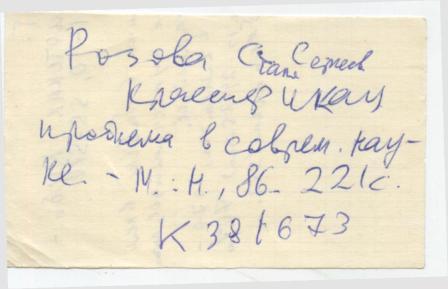 Розова С Сергеев
Стал
Классификац
проблема в соврем. нау-
ке. - М.: Н., 86. 221с.
К 381673